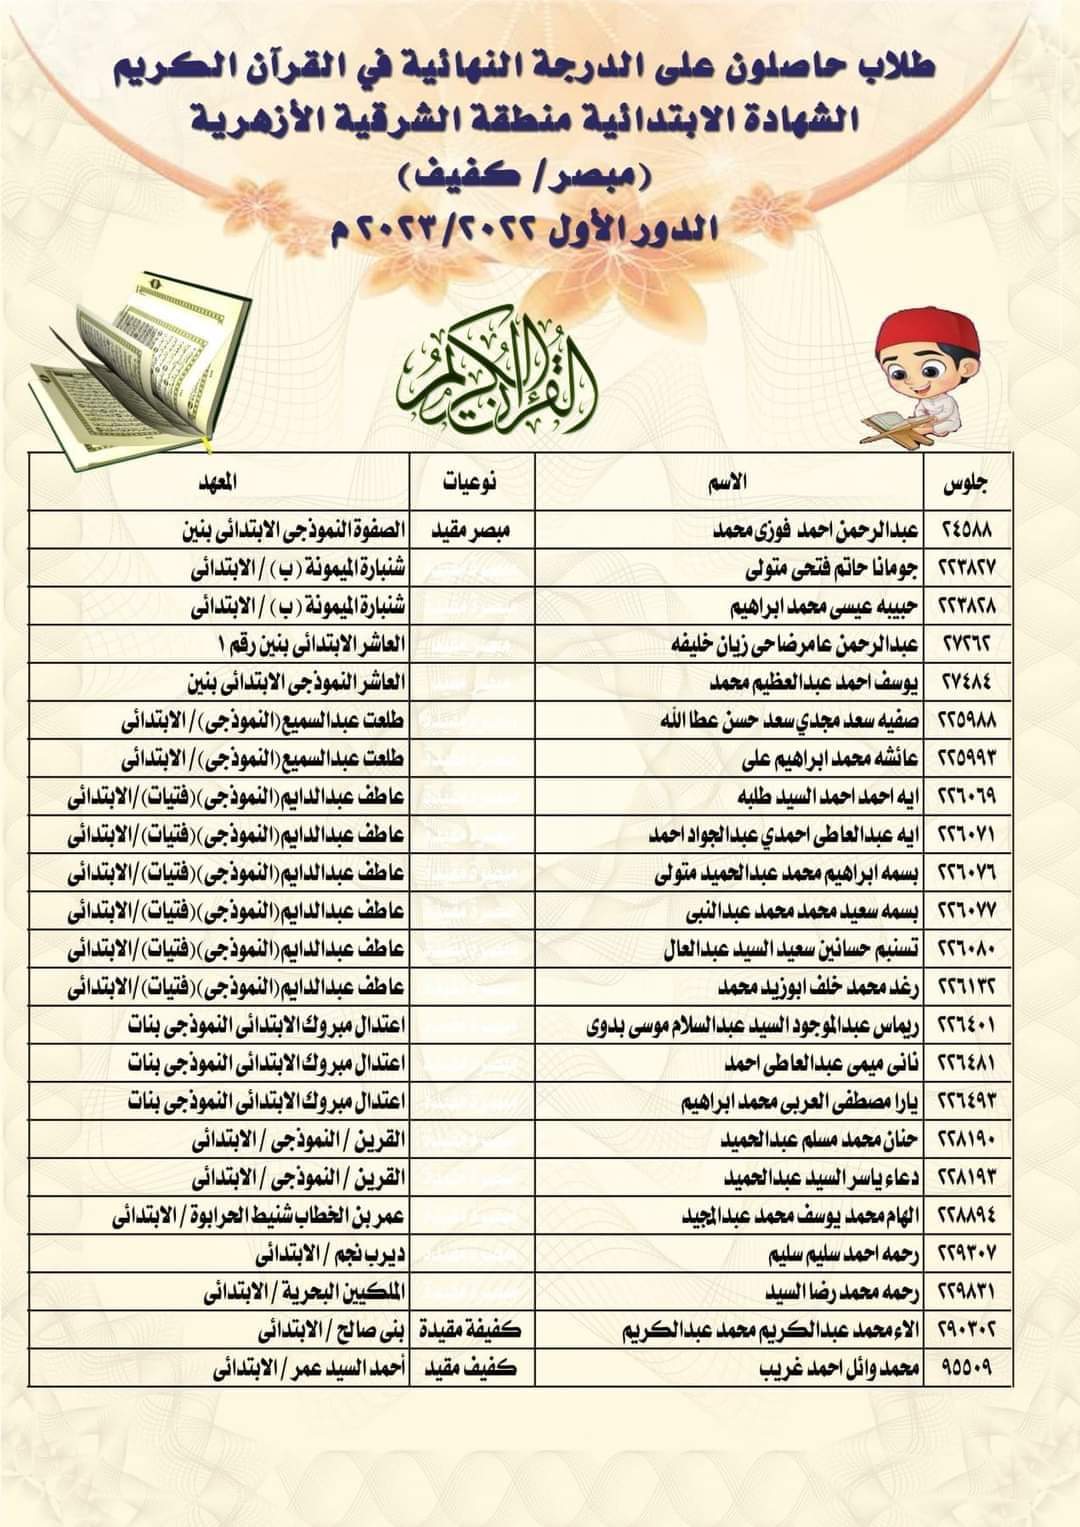 طلاب حاصلون على الدرجة النهائية في القرآن الكريم
الشهادة الابتدائية منطقة الشرقية الأزهرية
(مبصر/ كفيف)
الدور الأول ٢٠٢٣/٢٠٢٢ م
القرآن الكريم
جلوس الاسم نوعيات المعهد
٢٤٥٨٨ عبدالرحمن احمد فوزى محمد مبصر مقيد الصفوة النموذجى الابتدائى بنين
٢٢٣٨٢٧ جومانا حاتم فتحى متولى شنبارة الميمونة (ب) / الابتدائى
٢٢٣٨٢٨ حبيبه عيسى محمد ابراهيم شنبارة الميمونة (ب) / الابتدائى
٢٧٢٦٢ عبدالرحمن عامر ضاحى زيان خليفه العاشر الابتدائى بنين رقم ١
٢٧٤٨٤ يوسف احمد عبدالعظيم محمد العاشر النموذجى الابتدائى بنين
٢٢٥٩٨٨ صفيه سعد مجدي سعد حسن عطا الله طلعت عبدالسميع(النموذجى) / الابتدائى
٢٢٥٩٩٣ عائشه محمد ابراهيم على طلعت عبدالسميع(النموذجى) / الابتدائى
٢٢٦٠٦٩ ايه احمد احمد السيد طلبه عاطف عبدالدايم(النموذجى)(فتيات) /الابتدائى
٢٢٦٠٧١ ايه عبدالعاطى احمدي عبدالجواد احمد عاطف عبدالدايم(النموذجى)(فتيات) /الابتدائى
٢٢٦٠٧٦ بسمه ابراهيم محمد عبدالحميد متولى عاطف عبدالدايم(النموذجى)(فتيات) /الابتدائى
٢٢٦٠٧٧ بسمه سعيد محمد محمد عبدالنبى عاطف عبدالدايم(النموذجى)(فتيات) /الابتدائى
٢٢٦٠٨٠ تسنيم حسانين سعيد السيد عبدالعال عاطف عبدالدايم(النموذجى)(فتيات) /الابتدائى
٢٢٦١٣٢ رغد محمد خلف ابوزيد محمد عاطف عبدالدايم(النموذجى)(فتيات) /الابتدائى
٢٢٦٤٠١ ريماس عبدالموجود السيد عبدالسلام موسى بدوى اعتدال مبروك الابتدائى النموذجى بنات
٢٢٦٤٨١ نانى ميمى عبدالعاطى احمد اعتدال مبروك الابتدائى النموذجى بنات
٢٢٦٤٩٣ يارا مصطفى العربى محمد ابراهيم اعتدال مبروك الابتدائى النموذجى بنات
٢٢٨١٩٠ حنان محمد مسلم عبدالحميد القرين / النموذجى / الابتدائى
٢٢٨١٩٣ دعاء ياسر السيد عبدالحميد القرين / النموذجى / الابتدائى
٢٢٨٨٩٤ الهام محمد يوسف محمد عبدالمجيد عمر بن الخطاب شنيط الحرابوة / الابتدائى
٢٢٩٣٠٧ رحمه احمد سليم سليم ديرب نجم / الابتدائى
٢٢٩٨٣١ رحمه محمد رضا السيد الملكيين البحرية / الابتدائى
٢٩٠٣٠٢ الاء محمد عبدالكريم محمد عبدالكريم كفيفة مقيدة بنى صالح / الابتدائى
٩٥٥٠٩ محمد وائل احمد غريب كفيف مقيد أحمد السيد عمر / الابتدائى